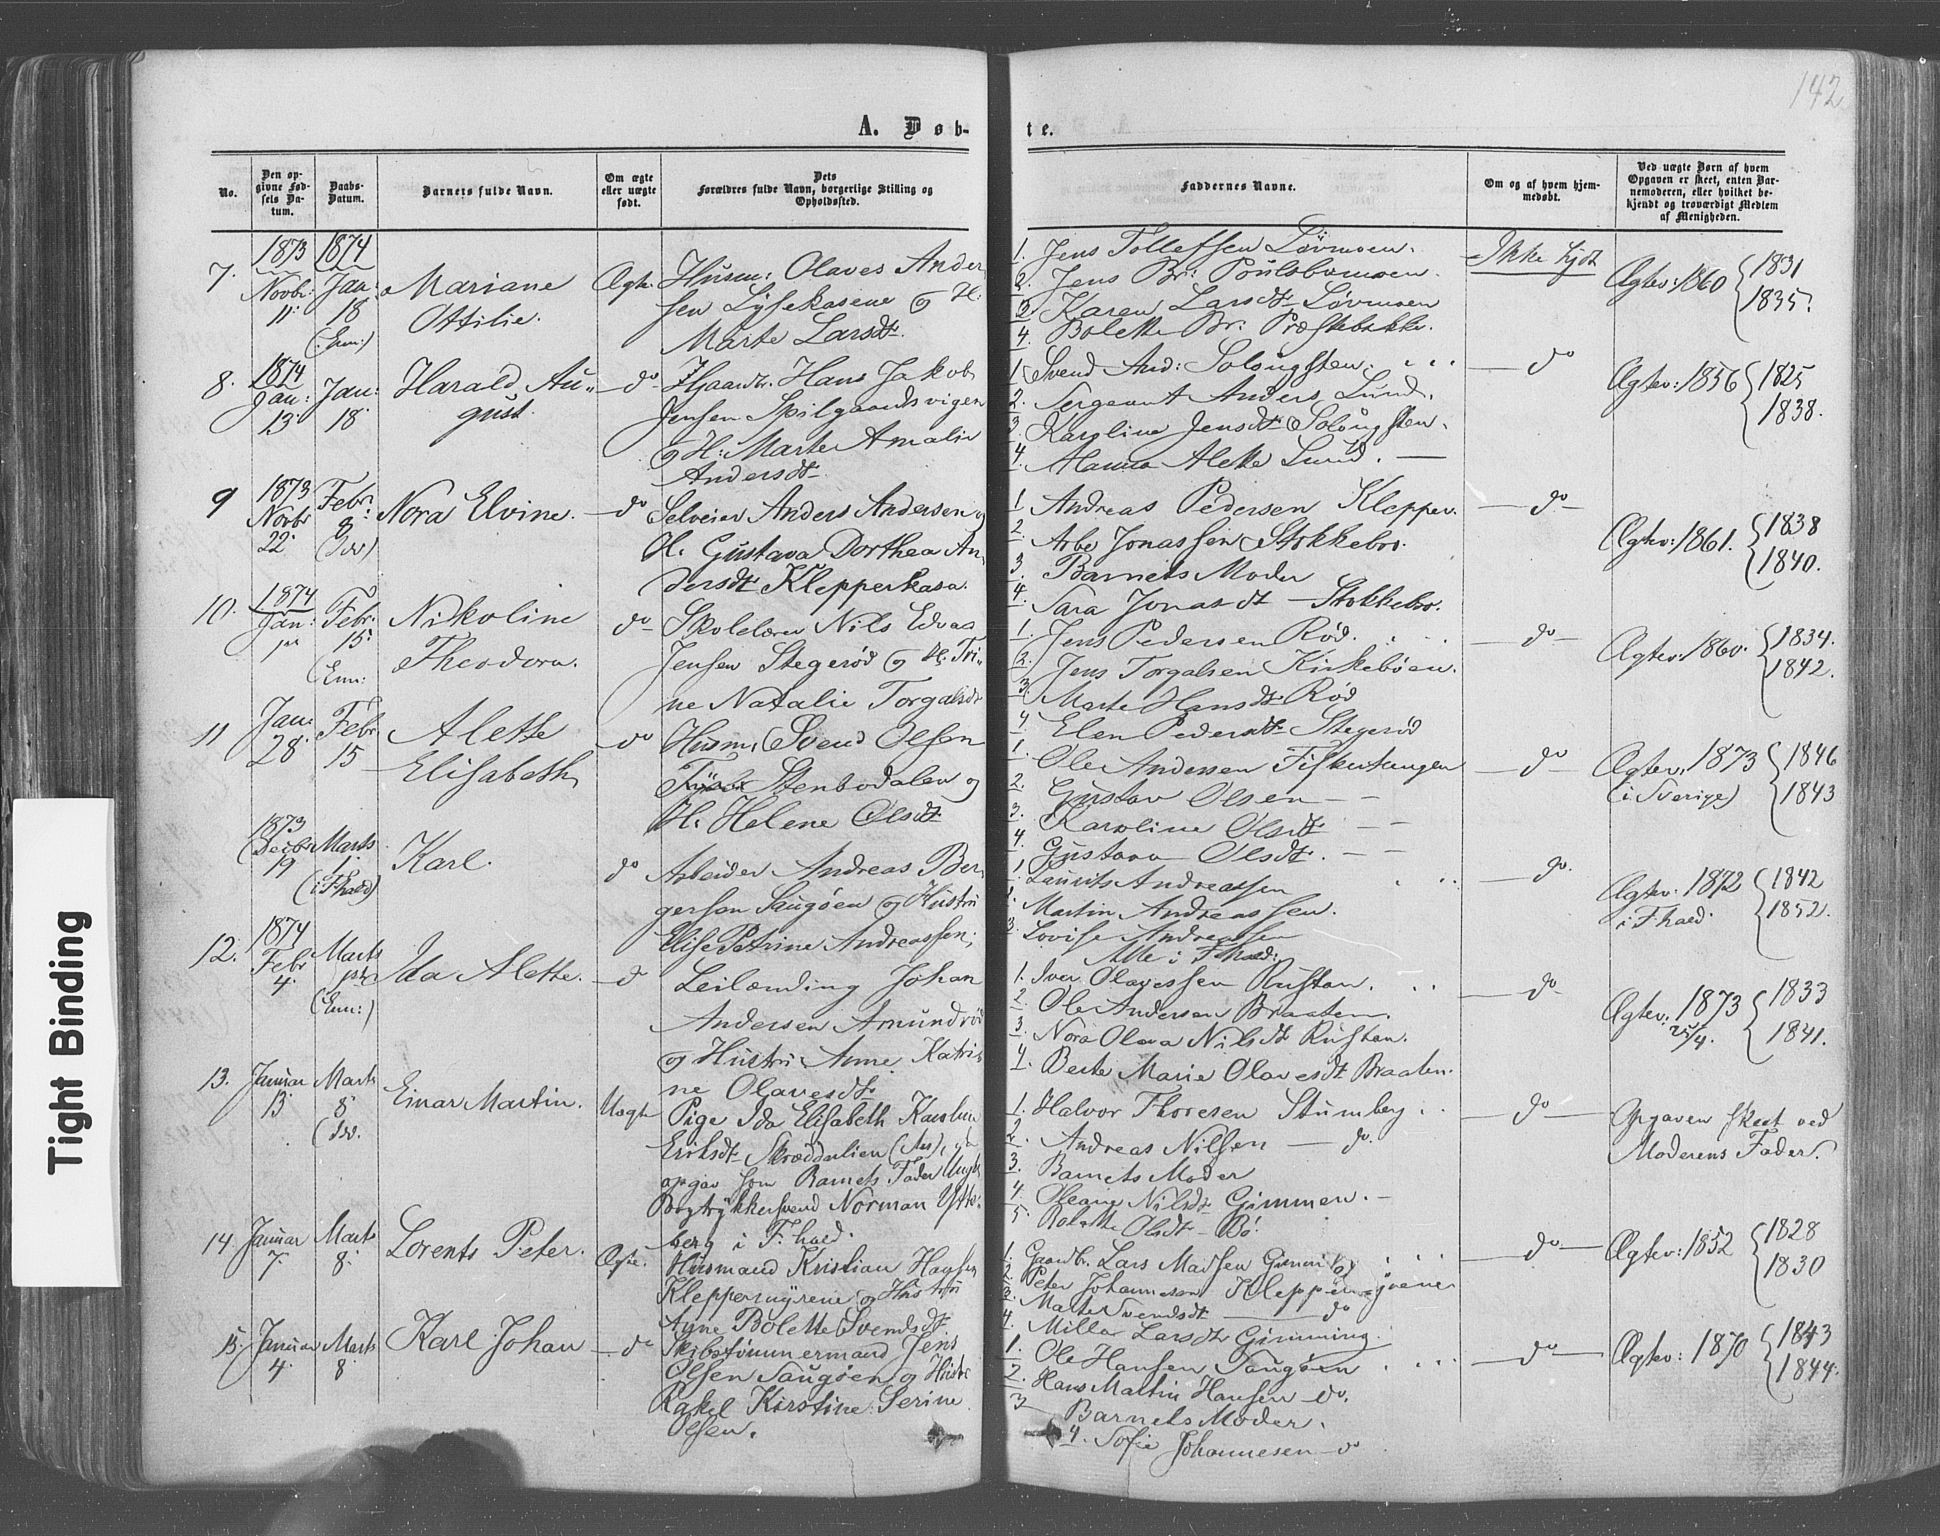 142
A. Døb-
te.
No.
Den op-
givne Fød-
sels Da-
tum.
Daabs-
Datum.
Barnets fulde Navn.
Om ægte
eller uægte
født.
Dets
Forældres fulde Navn, borgerlige Stilling og
Opholdssted.
Faddernes Navne.
Om og af hvem hjem-
medøbt.
Ved uægte Børn af hvem
Opgaven er skeet, enten Bar-
nemoderen, eller hvilket be-
kjendt og troværdigt Medlem
af Menigheden.
7.
1873
Novbr:
11.
1874
Jan:
18
(Enn:)
Mariane
Ottilie.
Ægte.
Husm: Olaves Ander
sen Lysekasene og H:
Marte Larsdt.
1. Jens Tollefsen Lövmoen.
2. Jens Br:
3. Karen Larsdt Lövmoen
4. Bolette Br: Præstebakke.
Ikke hjdt
Ægtev: 1860 { 1831
1835.
8.
1874
Jan:
13
Jan:
18.
Harald Au-
gust.
do
Gaardbr. Hans Jakob
Jensen Spilgaardsvigen
og H: Marte Amalie
Andersdt.
1 Svend And: Solougsten
2. Sergeant Anders Lund.
3 Karoline Jensdt Solougsten.
4. Hanna Alette Lund.
do
Ægtev: 1856 { 1825
1838.
9
1873
Novbr
22.
Febr.
8.
(Idd)
Nora Elvine.
do
Selveier Anders Andersen og
H. Gustava Dorthea An-
dersdt Klepperkasa.
1 Andreas Pedersen Klepper.
2. Arbr Jonassen Stokkebo.
3. Barnets Moder
4. Sara Jonasdt Stokkebo.
do
Ægtev: 1861. { 1838
1840.
10.
1874
Jan:
Febr.
15.
(Enn:
Nikoline
Theodora.
do
Skolelærer Nils Edvas
Jensen Stegerød og H. Tri-
ne Natalie Torgalsdt
1. Jens Pedersen Rød.
2. Jens Torgalsen Kirkebøen.
3. Marte Hansdt Rød
4. Elen Pedersdt Stegerød
do
Ægtev: 1860. { 1834.
1842.
11
Jan:
28.
Febr
15
Alette
Elisabeth
do
Husm. Svend Olsen
Stenbodalen og
H. Helene Olsdt
1. Ole Andersen Fiskertangen
2. Gustav Olsen
3. Karoline Olsdt
4. Gustava Olsdt.
do
Ægtev. 1873 { 1846
(i Sverige) 1843
1873
Decbr
19
Marts
1.
(i Fhald)
Karl.
do
Arbeider Andreas Ber-
gersen Saugøen og Hustru
Elise Petrine Andreassen.
1. Laurits Andreassen
Martin Andreassen.
3. Lovise Andreassen
Alle i Fhald.
do.
Ægtev: 1872 { 1842
i Fhald. 1852.
12.
1874
Febr
4.
Marts
(Enn:)
Ida Alette.
do
Leilænding Johan
Andersen Amundrød
og Hustru Anne Katri
ne Olavesdt.
1. Iver Olavessen Rustan.
2. Ole Andersen Braaten.
3. Nora Olava Nilsdt Rustan.
4. Berte Marie Olavesdt Braaten.
do
Ægtev. 1873 { 1833
25/4. 1841.
13.
Januar
13
Marts
8
(Idd.
Einar Martin.
Uægte
Pige Ida Elisabeth Karoline
Eriksdt Skræddalien (Aas),
opgav som Barnets Fader Ungk.
Bogtrykkersvend Norman Ytte
berg i F.hald.
1. Halvor Thoresen Stumberg
2. Andreas Nilsen do.
3. Barnets Moder
4. Oleane Nilsdt Gimmen.
5. Bolette Olsdt Bø.
do
Opgaven skeet ved
Moderens Fader.
14.
Januar
7.
Marts
8.
Lorents Peter.
Ægte.
Husmand Kristian Hansen
Kleppermyrene og Hustru
Anne Bolette Svendsdt
1. Gaardbr. Lars Madsen Gimming
2. Peter Johannesen Kleppermyrene
3. Marte Svendsdt do
4. Milla Larsdt Gimming.
do
Ægtev: 1852 { 1828
1830
15.
Januar
4.
Marts
8.
Karl Johan
do
Skibstømmermand Jens
Olsen Saugøen og Hustru
Rakel Kirstine Serine
Olsen.
1. Ole Hansen Saugøen
2. Hans Martin Hansen do.
3 Barnets Moder.
4. Sofie Johannesen do
do
Ægtev: 1870 { 1843
1844.
Tight Binding